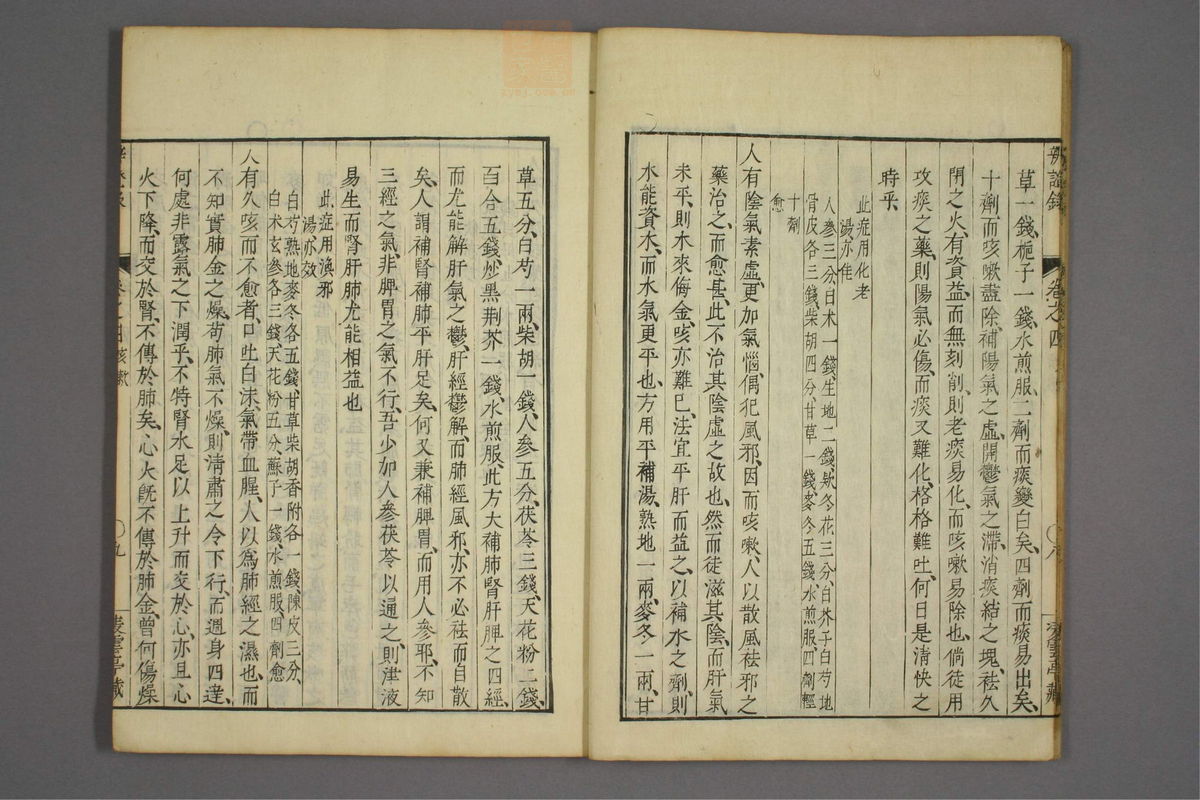 辨證錄 卷之四 八 凌雲亭藏
草一錢、梔子一錢、水煎服、二劑而痰變白矣、四劑而痰易出矣、
十劑而咳嗽盡除、補陽氣之虛、開鬱氣之滯、消痰結之塊、祛久
閉之火、有資益而無刻削、則老痰易化、而咳嗽易除也、倘徒用
攻痰之藥、則陽氣必傷、而痰又難化、格格難吐、何日是清快之
時乎、
此症用化老
湯亦佳
人參三分白术一錢生地二錢欵冬花三分白芥子白芍地
骨皮各三錢柴胡四分甘草一錢麥冬五錢水煎服四劑輕
十劑
愈
人有陰氣素虛、更加氣惱、偶犯風邪、因而咳嗽、人以散風祛邪之
藥治之而愈甚、此不治其陰虛之故也、然而徒滋其陰、而肝氣
未平、則木來侮金、咳亦難已、法宜平肝而益之、以補水之劑、則
水能資木、而水氣更平也、方用平補湯、熟地一兩、麥冬一兩、甘
草五分、白芍一兩、柴胡一錢、人參五分、茯苓三錢、天花粉二錢、
百合五錢、炒黑荆芥一錢、水煎服、此方大補肺腎肝脾之四經、
而尤能解肝氣之鬱、肝經鬱解、而肺經風邪、亦不必祛而自散
矣、人謂補腎補肺平肝足矣、何又兼補脾胃、而用人參耶、不知
三經之氣、非脾胃之氣不行、吾少加人參茯苓以通之、則津液
易生而腎肝肺尤能相益也
此症用渙邪
湯亦效
白芍熟地麥冬各五錢甘草柴胡香附各一錢陳皮三分
白术玄參各三錢天花粉五分蘇子一錢水煎服四劑愈
人有久咳而不愈者、口吐白沫、氣帶血腥、人以爲肺經之濕也、而
不知實肺金之燥、苟肺氣不燥、則清肅之令下行、而週身四達、
何處非露氣之下潤乎、不特腎水足以上升而交於心、亦且心
火下降、而交於腎、不傳於肺矣、心火旣不傳於肺金、曾何傷燥
咳嗽 九 凌雲亭藏